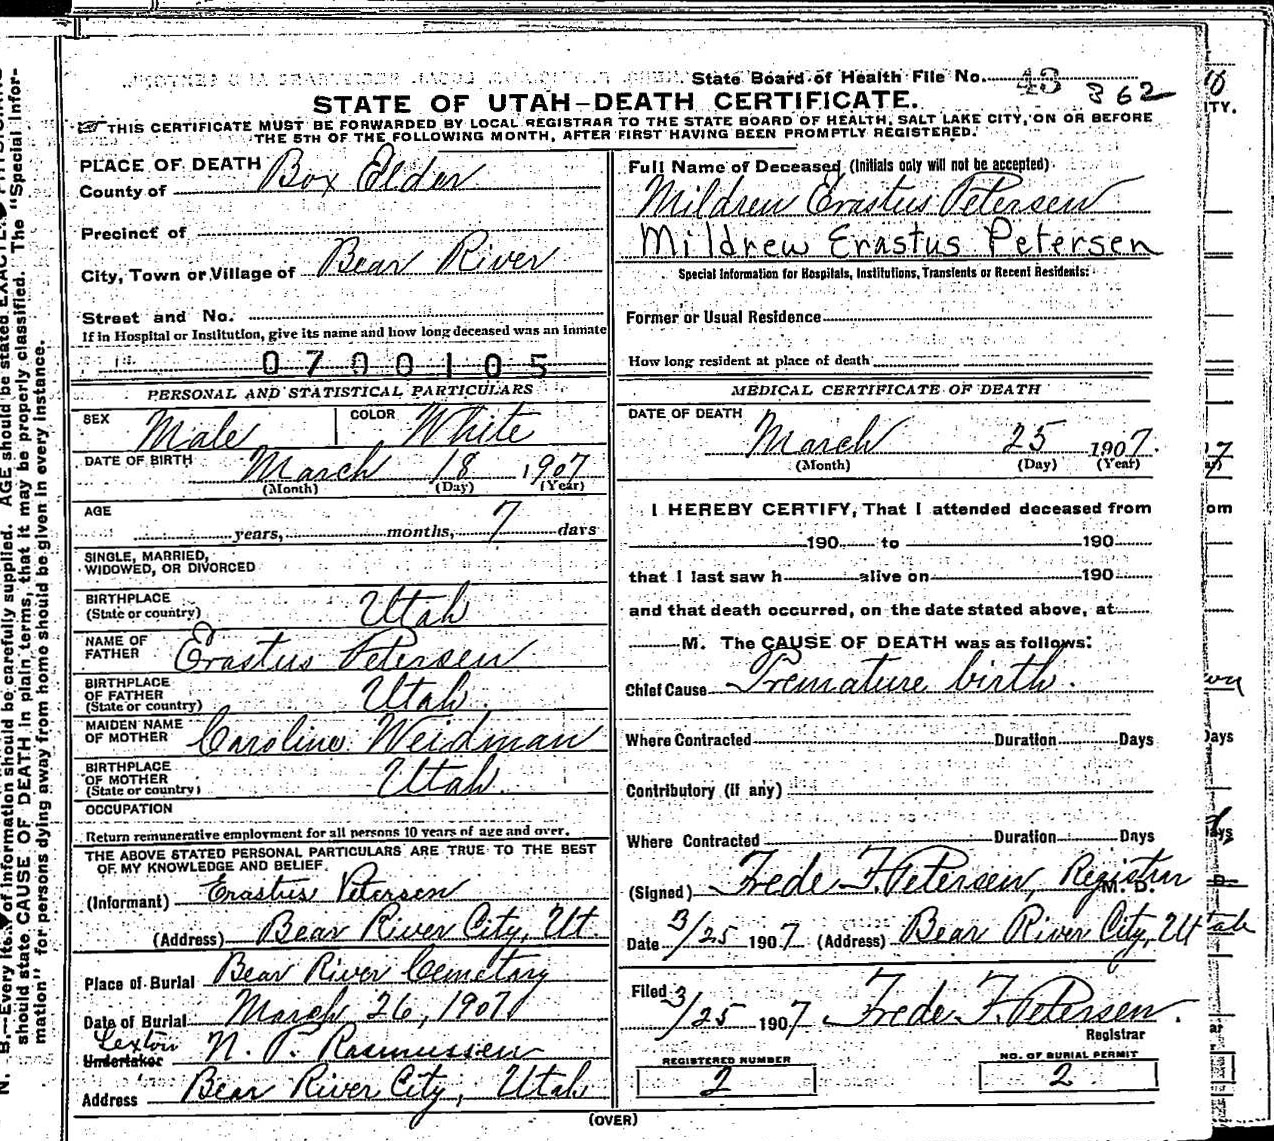 N. B.—Every item of information should be carefully supplied. AGE should be stated EXACTLY.
should state CAUSE OF DEATH in plain terms, that it may be properly classified. The "Special Infor-
mation" for persons dying away from home should be given in every instance.
State Board of Health File No. 43 362
STATE OF UTAH—DEATH CERTIFICATE.
THIS CERTIFICATE MUST BE FORWARDED BY LOCAL REGISTRAR TO THE STATE BOARD OF HEALTH, SALT LAKE CITY, ON OR BEFORE
THE 5TH OF THE FOLLOWING MONTH, AFTER FIRST HAVING BEEN PROMPTLY REGISTERED.
PLACE OF DEATH
County of Box Elder
Precinct of
City, Town or Village of Bear River
Street and No.
If in Hospital or Institution, give its name and how long deceased was an inmate
0700105
PERSONAL AND STATISTICAL PARTICULARS
SEX Male COLOR White
DATE OF BIRTH March 18 1907
(Month) (Day) (Year)
AGE
years, months, 7 days
SINGLE, MARRIED,
WIDOWED, OR DIVORCED
BIRTHPLACE
(State or country) Utah
NAME OF
FATHER Erastus Petersen
BIRTHPLACE
OF FATHER
(State or country) Utah
MAIDEN NAME
OF MOTHER Caroline Weidman
BIRTHPLACE
OF MOTHER
(State or country) Utah
OCCUPATION
Return remunerative employment for all persons 10 years of age and over.
THE ABOVE STATED PERSONAL PARTICULARS ARE TRUE TO THE BEST
OF MY KNOWLEDGE AND BELIEF.
(Informant) Erastus Petersen
(Address) Bear River City, Ut
Place of Burial Bear River Cemetary
Date of Burial March 26, 1907
Sexton
Undertaker N. P. Rasmussen
Address Bear River City, Utah
Full Name of Deceased (Initials only will not be accepted)
Mildren Erastus Petersen
Mildrew Erastus Petersen
Special Information for Hospitals, Institutions, Transients or Recent Residents:
Former or Usual Residence
How long resident at place of death
MEDICAL CERTIFICATE OF DEATH
DATE OF DEATH
March 25 1907.
(Month) (Day) (Year)
I HEREBY CERTIFY, That I attended deceased from
190 to 190
that I last saw h alive on 190
and that death occurred, on the date stated above, at
M. The CAUSE OF DEATH was as follows:
Chief Cause Premature birth.
Where Contracted Duration Days
Contributory (if any)
Where Contracted Duration Days
(Signed) Frede F. Petersen, Registrar M. D.
Date 3/25 1907 (Address) Bear River City, Utah
Filed 3/25 1907 Frede F. Petersen.
Registrar
REGISTERED NUMBER
2
NO. OF BURIAL PERMIT
2
(OVER)